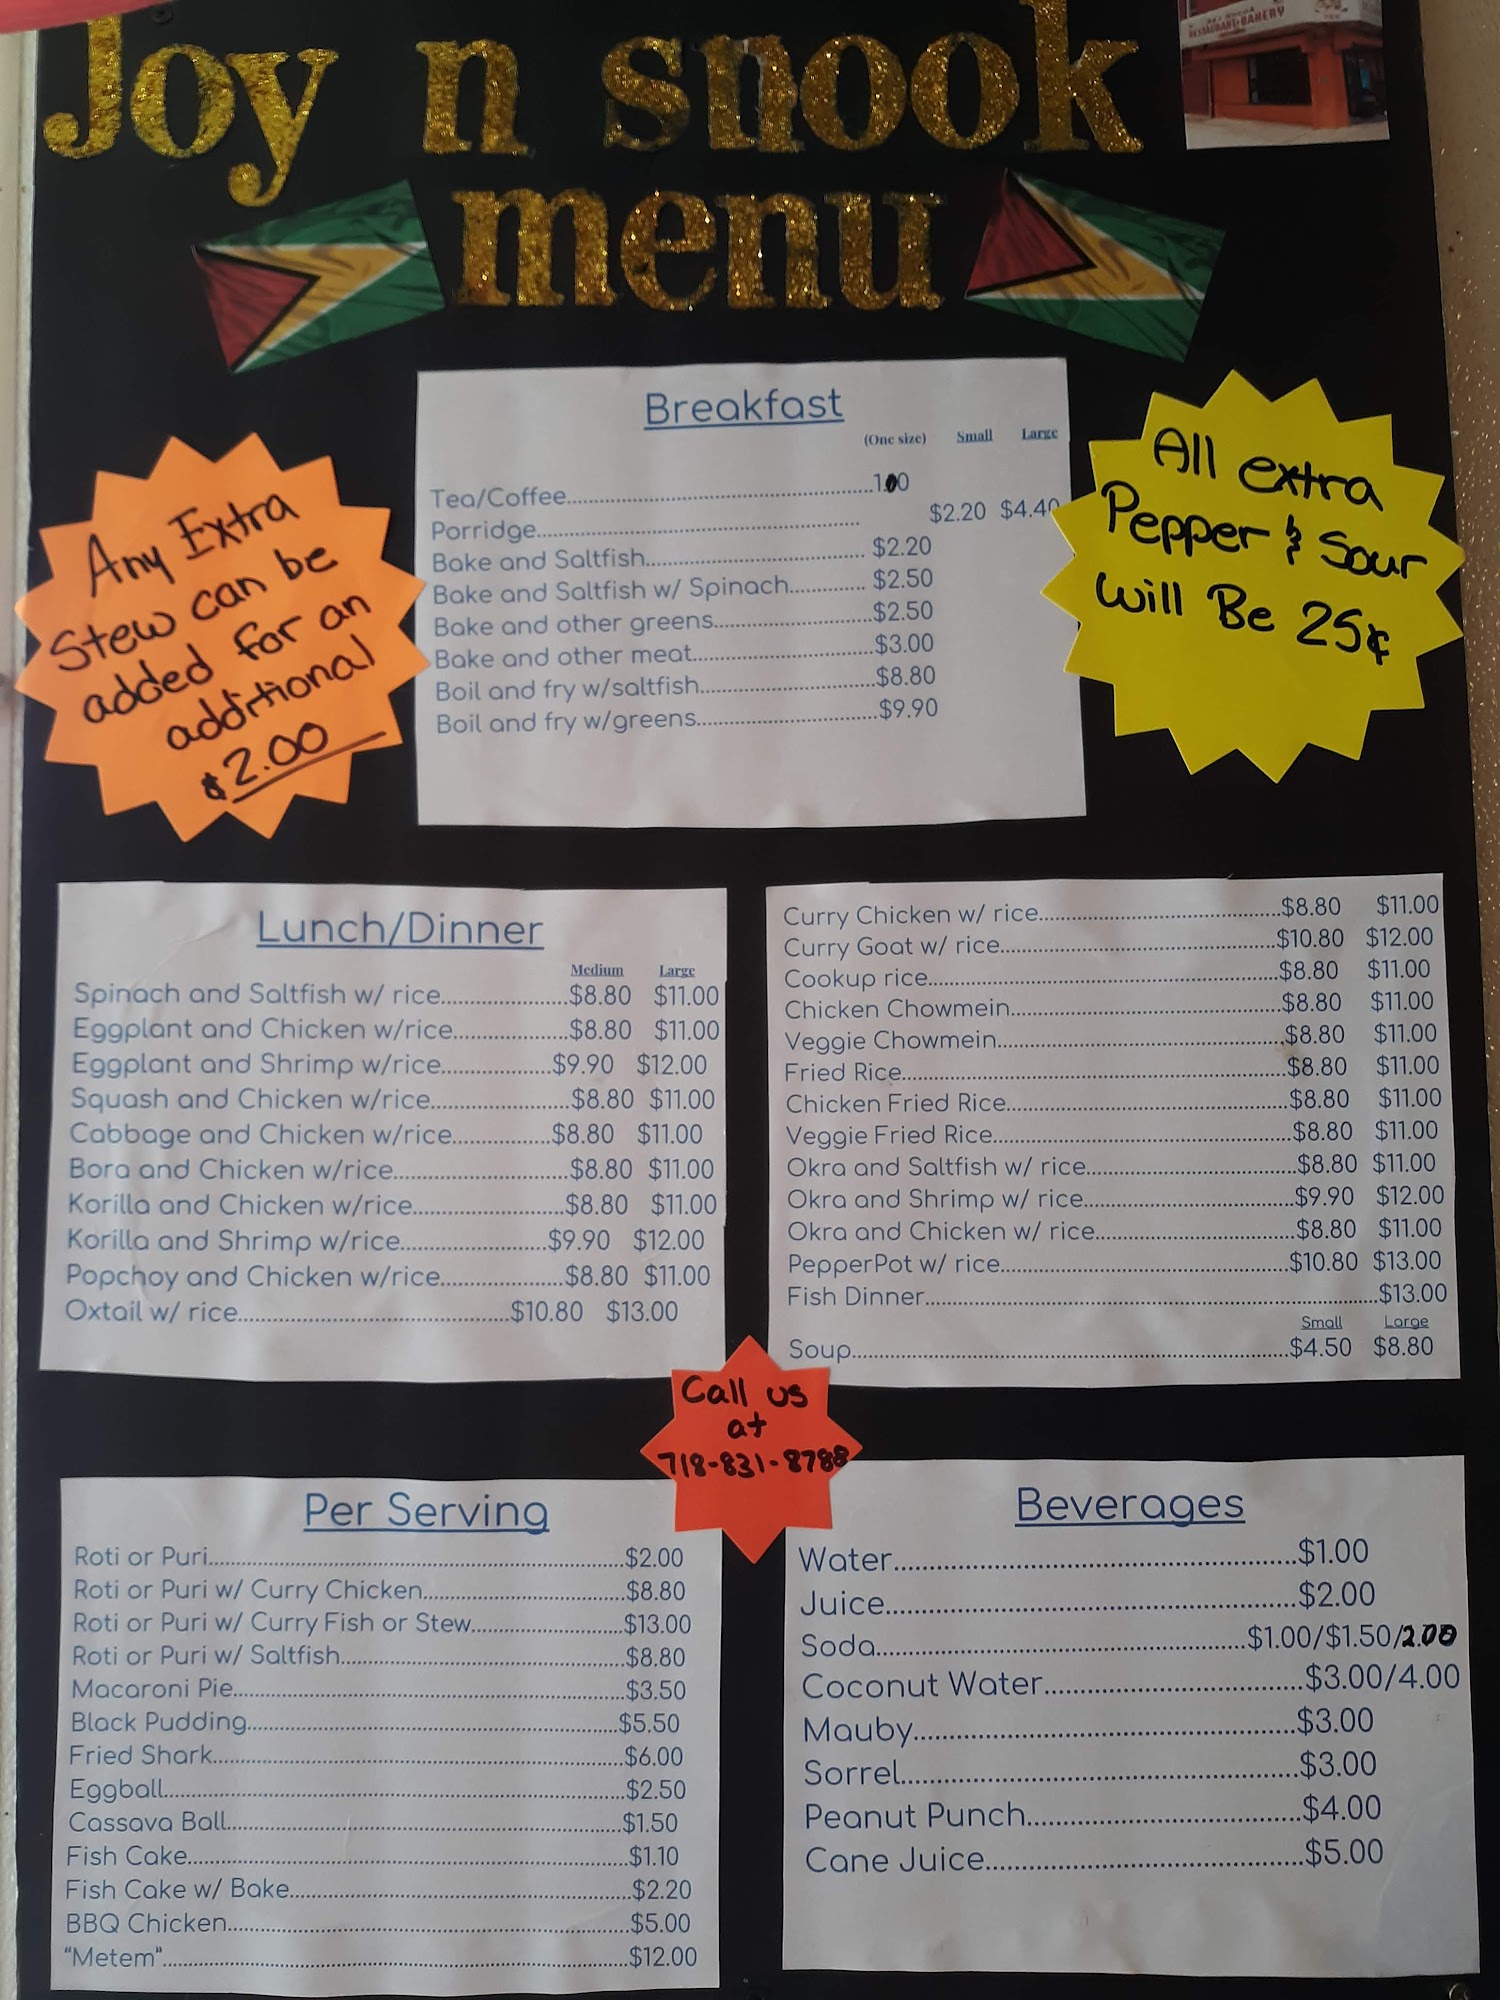 Joy n snook
menu
RESTAURANT & BAKERY
Any Extra
Stew can be
added for an
additional
$2.00
All extra
Pepper & Sour
will Be 25¢
Breakfast
(One size) Small Large
Tea/Coffee..........1.00
Porridge.......... $2.20 $4.40
Bake and Saltfish.......... $2.20
Bake and Saltfish w/ Spinach.......... $2.50
Bake and other greens..........$2.50
Bake and other meat..........$3.00
Boil and fry w/saltfish..........$8.80
Boil and fry w/greens..........$9.90
Lunch/Dinner
Medium Large
Spinach and Saltfish w/ rice..........$8.80 $11.00
Eggplant and Chicken w/rice..........$8.80 $11.00
Eggplant and Shrimp w/rice..........$9.90 $12.00
Squash and Chicken w/rice..........$8.80 $11.00
Cabbage and Chicken w/rice..........$8.80 $11.00
Bora and Chicken w/rice..........$8.80 $11.00
Korilla and Chicken w/rice..........$8.80 $11.00
Korilla and Shrimp w/rice..........$9.90 $12.00
Popchoy and Chicken w/rice..........$8.80 $11.00
Oxtail w/ rice..........$10.80 $13.00
Curry Chicken w/ rice..........$8.80 $11.00
Curry Goat w/ rice..........$10.80 $12.00
Cookup rice..........$8.80 $11.00
Chicken Chowmein..........$8.80 $11.00
Veggie Chowmein..........$8.80 $11.00
Fried Rice..........$8.80 $11.00
Chicken Fried Rice..........$8.80 $11.00
Veggie Fried Rice..........$8.80 $11.00
Okra and Saltfish w/ rice..........$8.80 $11.00
Okra and Shrimp w/ rice..........$9.90 $12.00
Okra and Chicken w/ rice..........$8.80 $11.00
PepperPot w/ rice..........$10.80 $13.00
Fish Dinner..........$13.00
Small Large
Soup..........$4.50 $8.80
Call us
at
718-831-8788
Per Serving
Roti or Puri..........$2.00
Roti or Puri w/ Curry Chicken..........$8.80
Roti or Puri w/ Curry Fish or Stew..........$13.00
Roti or Puri w/ Saltfish..........$8.80
Macaroni Pie..........$3.50
Black Pudding..........$5.50
Fried Shark..........$6.00
Eggball..........$2.50
Cassava Ball..........$1.50
Fish Cake..........$1.10
Fish Cake w/ Bake..........$2.20
BBQ Chicken..........$5.00
“Metem”..........$12.00
Beverages
Water..........$1.00
Juice..........$2.00
Soda..........$1.00/$1.50/2.00
Coconut Water..........$3.00/4.00
Mauby..........$3.00
Sorrel..........$3.00
Peanut Punch..........$4.00
Cane Juice..........$5.00